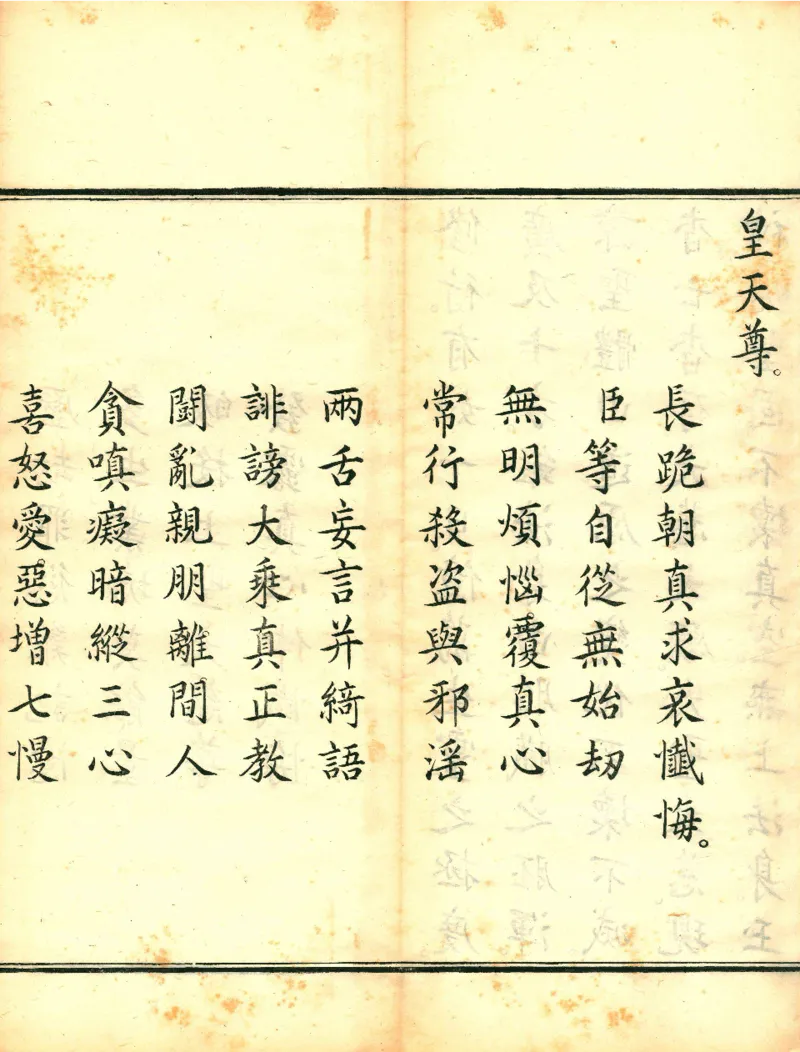 皇天尊。
長跪朝真求哀懺悔。
臣等自從無始劫
無明煩惱覆真心
常行殺盗與邪滛
兩舌妄言并綺語
誹謗大乗真正教
鬪亂親朋離間人
貪嗔癡暗縱三心
喜怒愛惡増七慢